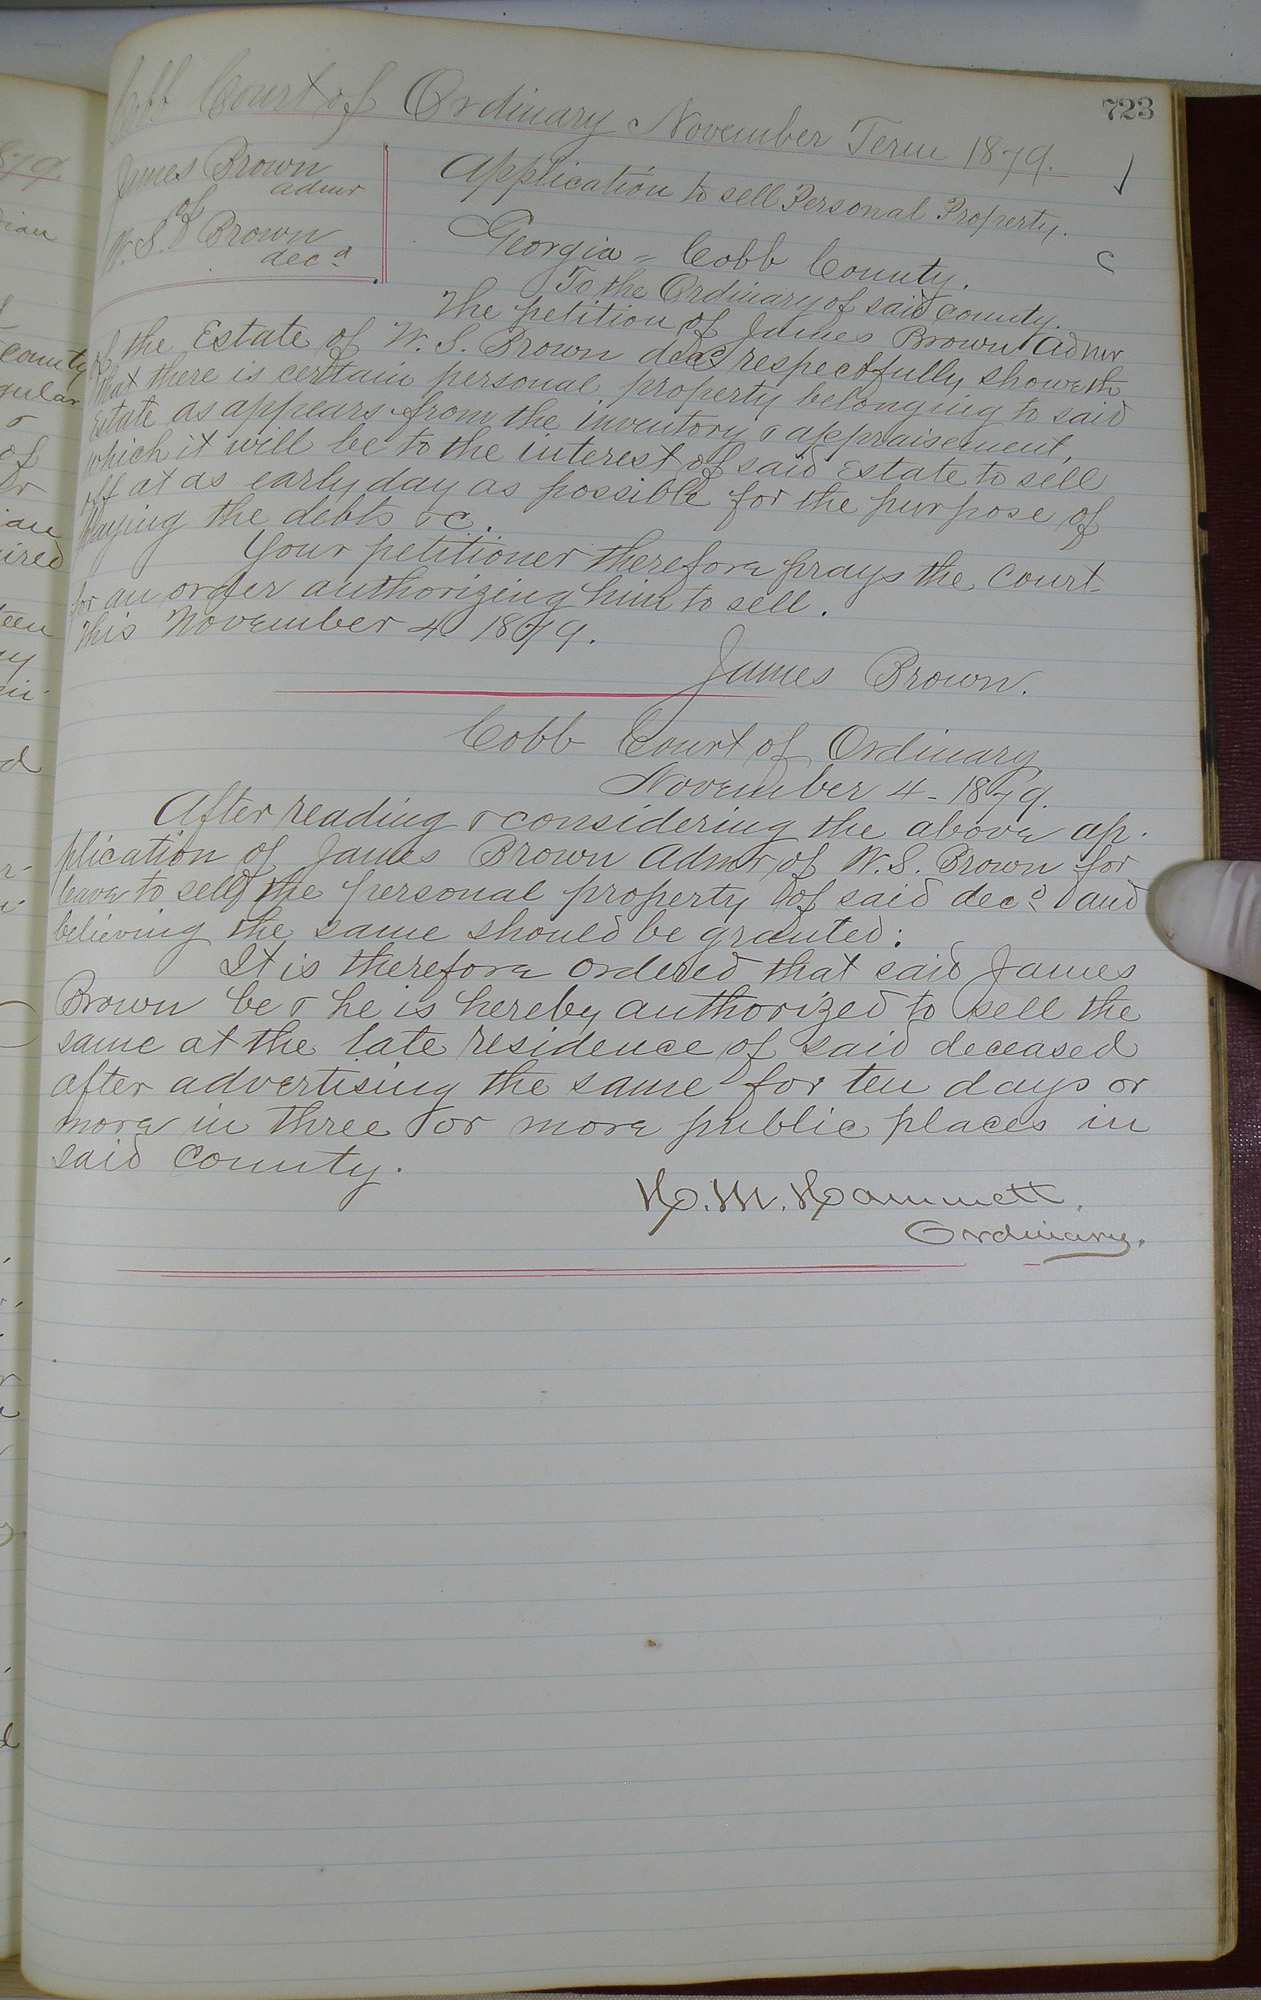 723
Cobb Court of Ordinary November Term 1879.
James Brown
admr
of
W. S. Brown
decd
Application to sell Personal Property.
Georgia = Cobb County.
To the Ordinary of said County.
The petition of James Brown Admr
of the Estate of W. S. Brown decd respectfully showeth
that there is certain personal property belonging to said
Estate as appears from the inventory & appraisement,
which it will be to the interest of said Estate to sell
off at as early day as possible for the purpose of
paying the debts &c.
Your petitioner therefore prays the Court
for an order authorizing him to sell.
This November 4 1879.
James Brown.
Cobb Court of Ordinary
November 4 - 1879.
After reading & considering the above ap-
plication of James Brown Admr of W. S. Brown for
leave to sell the personal property of said decd and
believing the same should be granted:
It is therefore ordered that said James
Brown be & he is hereby authorized to sell the
same at the late residence of said deceased
after advertising the same for ten days or
more in three or more public places in
said County.
H. M. Hammett
Ordinary.